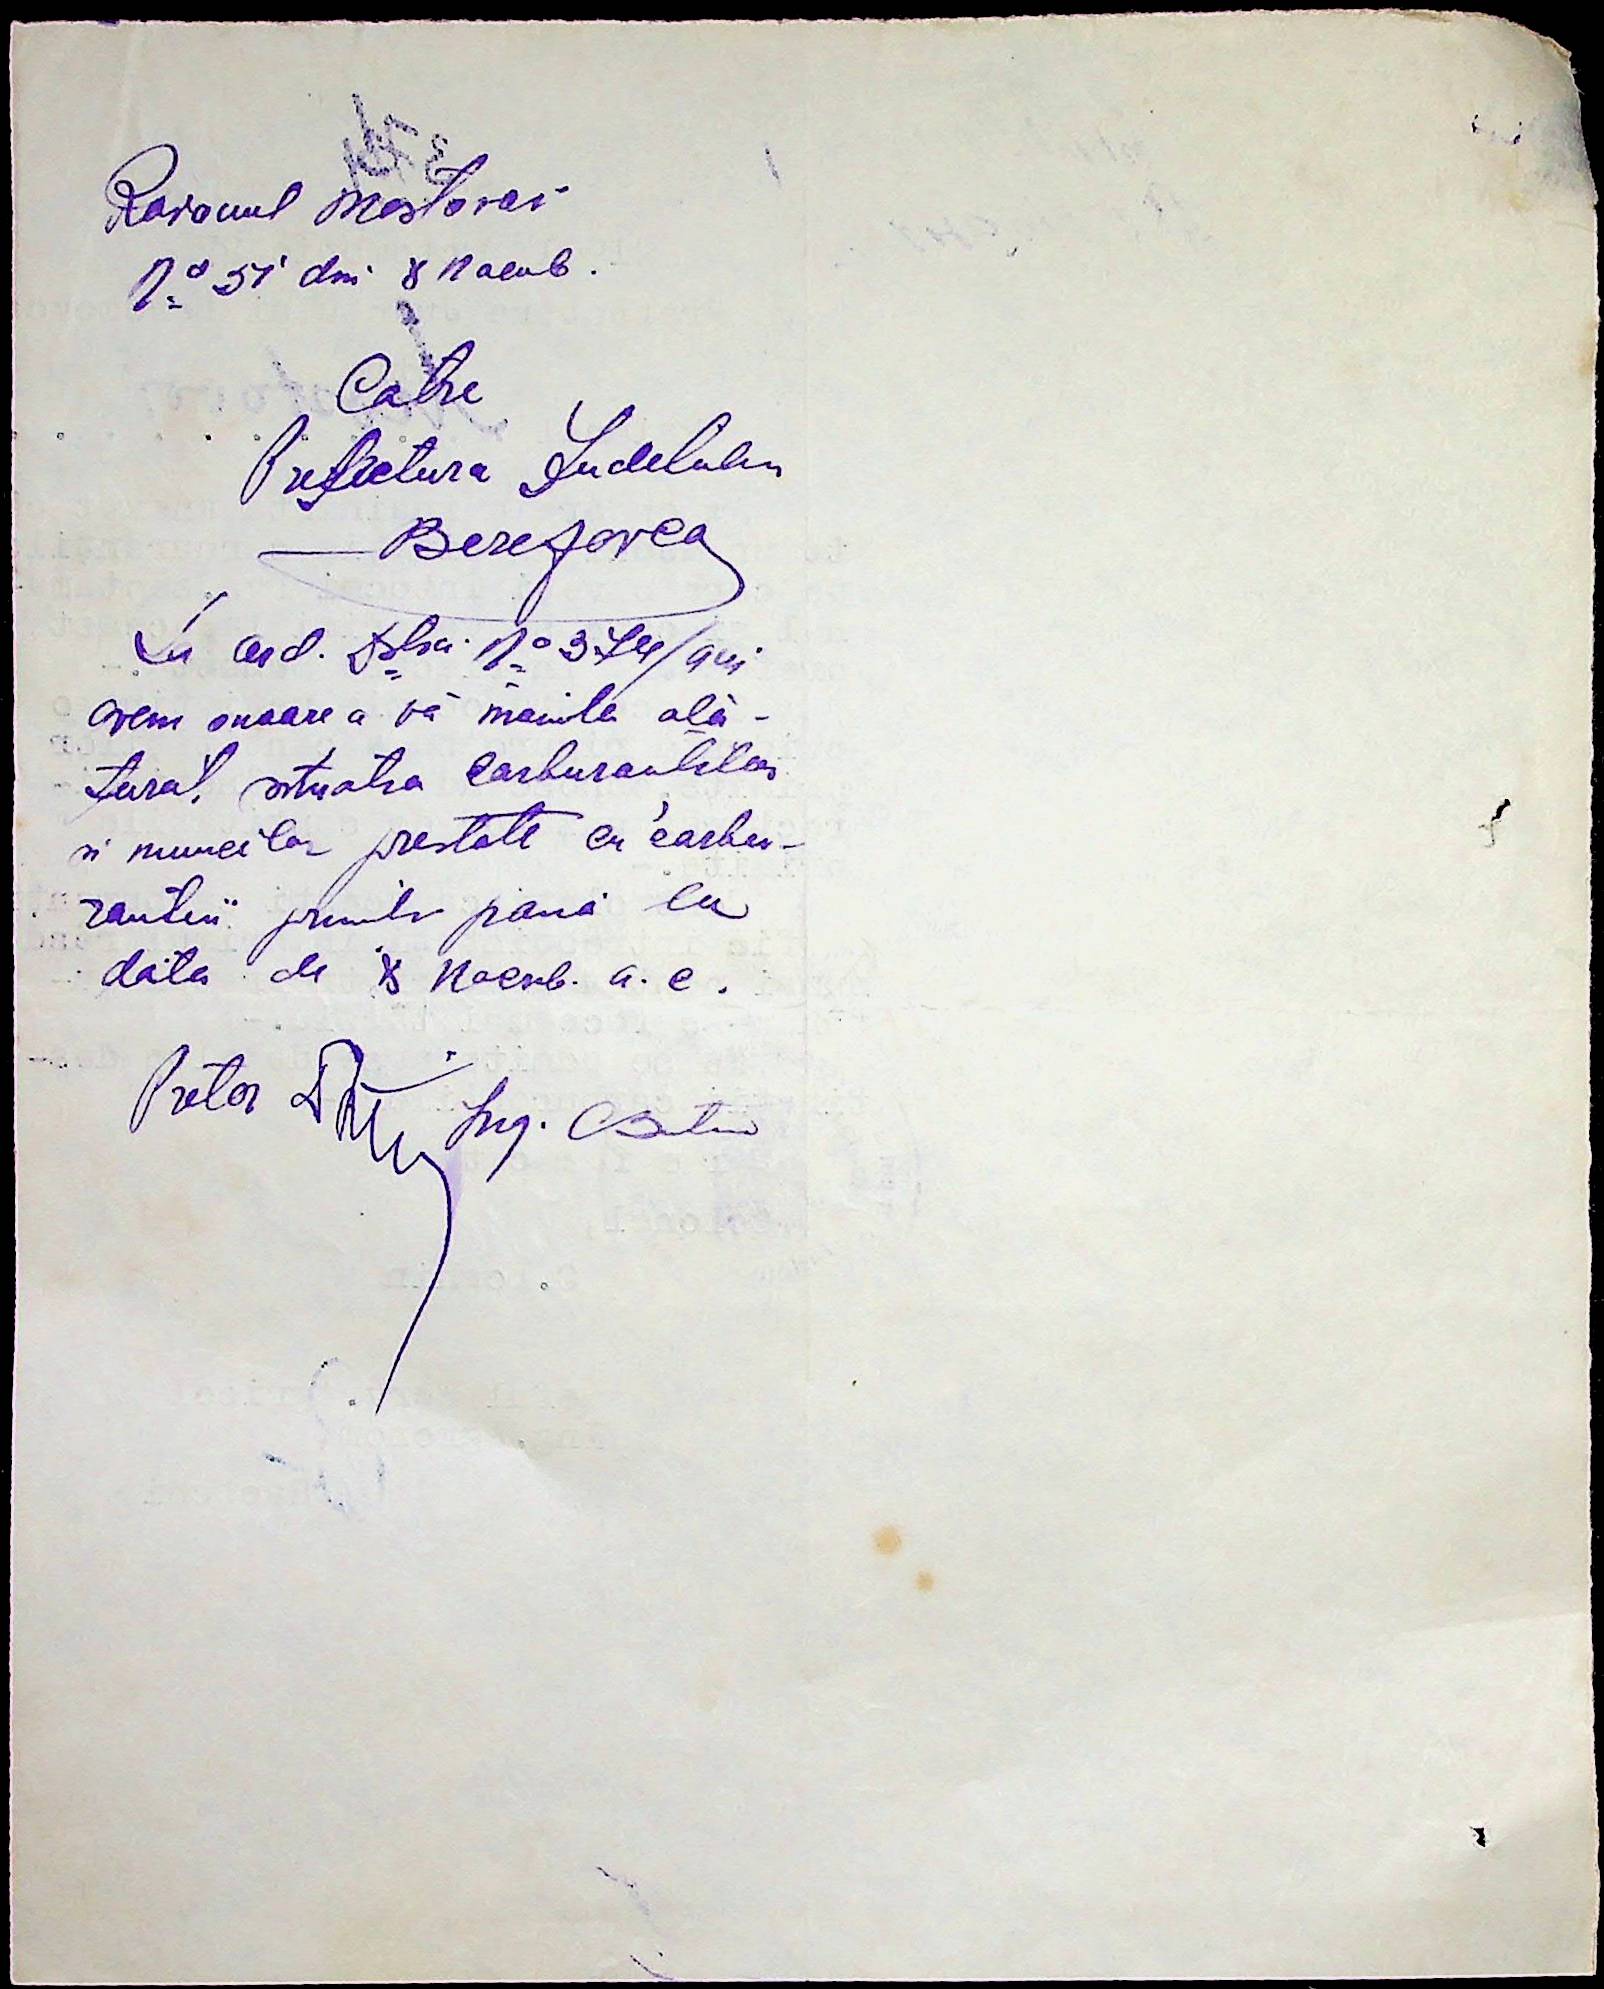 Raionul Mostovoi
No 51 din 8 Noemb.
Catre
Prefectura Judetului
Berezovca
La ord. Dvs. No 3774/941
avem onoare a vă înainta ală-
turat, situatia carburantilor
si muncilor prestate cu carbu-
rantii primiti pană la
data de 8 Noemb. a. c.
Pretor Ing.